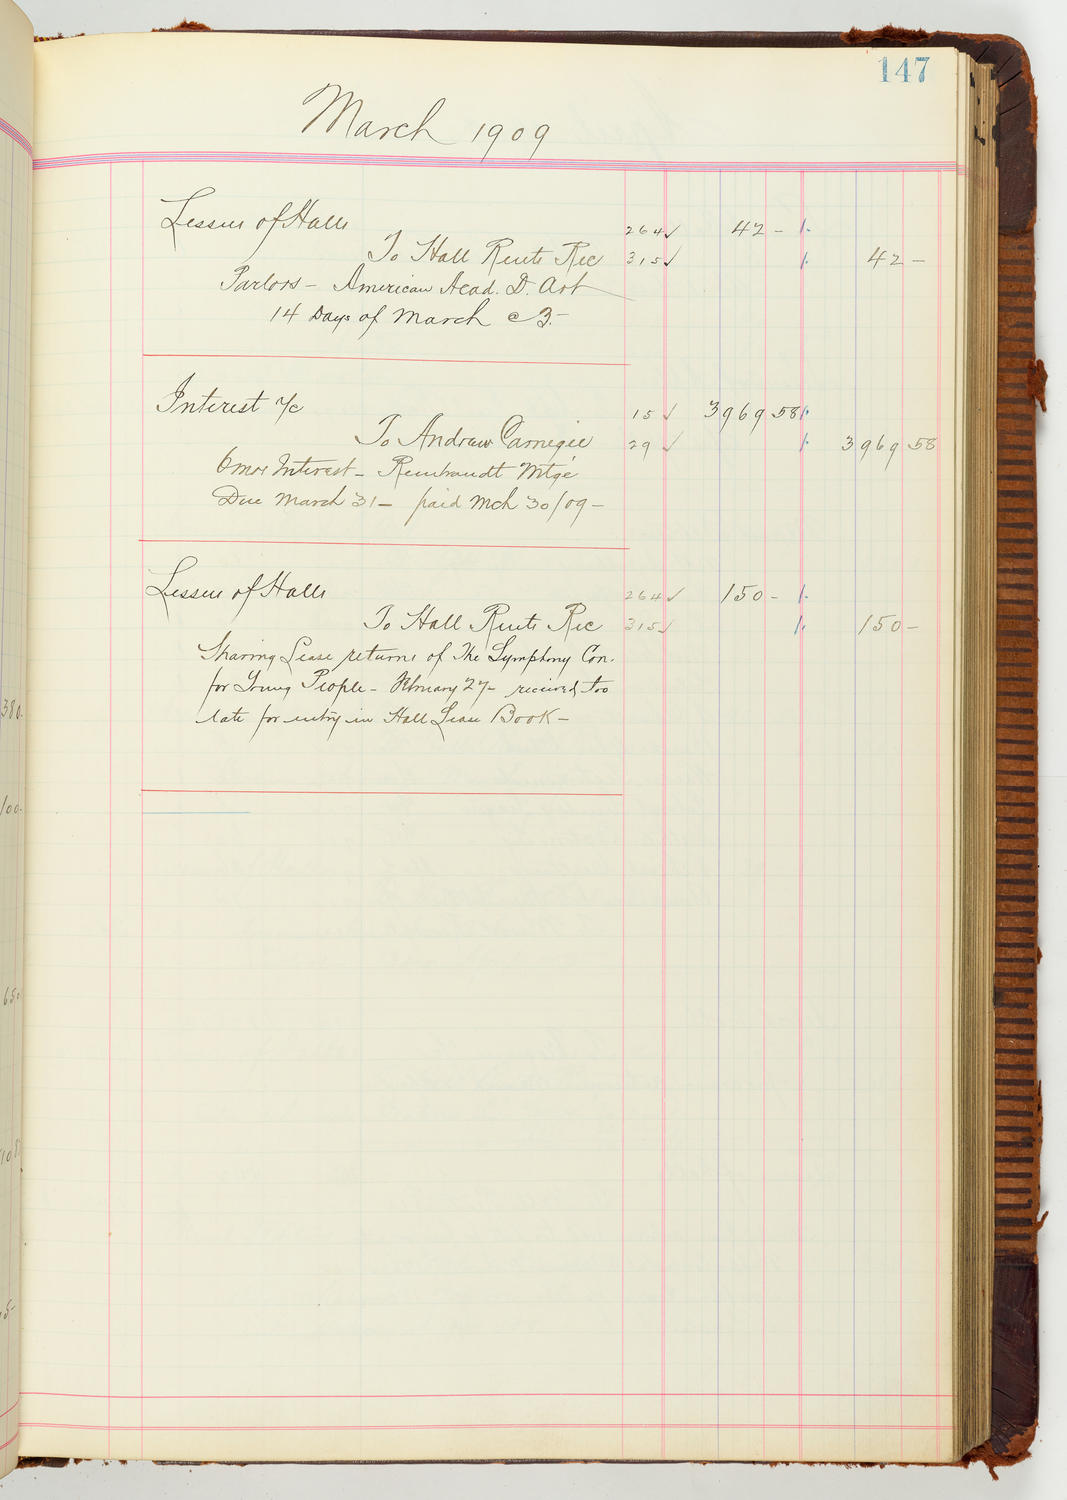 147
March 1909
Lessees of Halls 264 ✓ 42 –
To Hall Rents Rec 315 ✓ 42 –
Parlors – American Acad. D. Art
14 Days of March @ 3.–
Interest a/c 15 ✓ 3969 58
To Andrew Carnegie 29 ✓ 3969 58
6 mos Interest – Rembrandt Mtge
Due March 31 – paid Mch 30/09 –
Lessees of Halls 264 ✓ 150 –
To Hall Rents Rec 315 ✓ 150 –
Sharing Lease returns of The Symphony Con.
for Young People – February 27 – received too
late for entry in Hall Lease Book –
380.
100.
650
5–